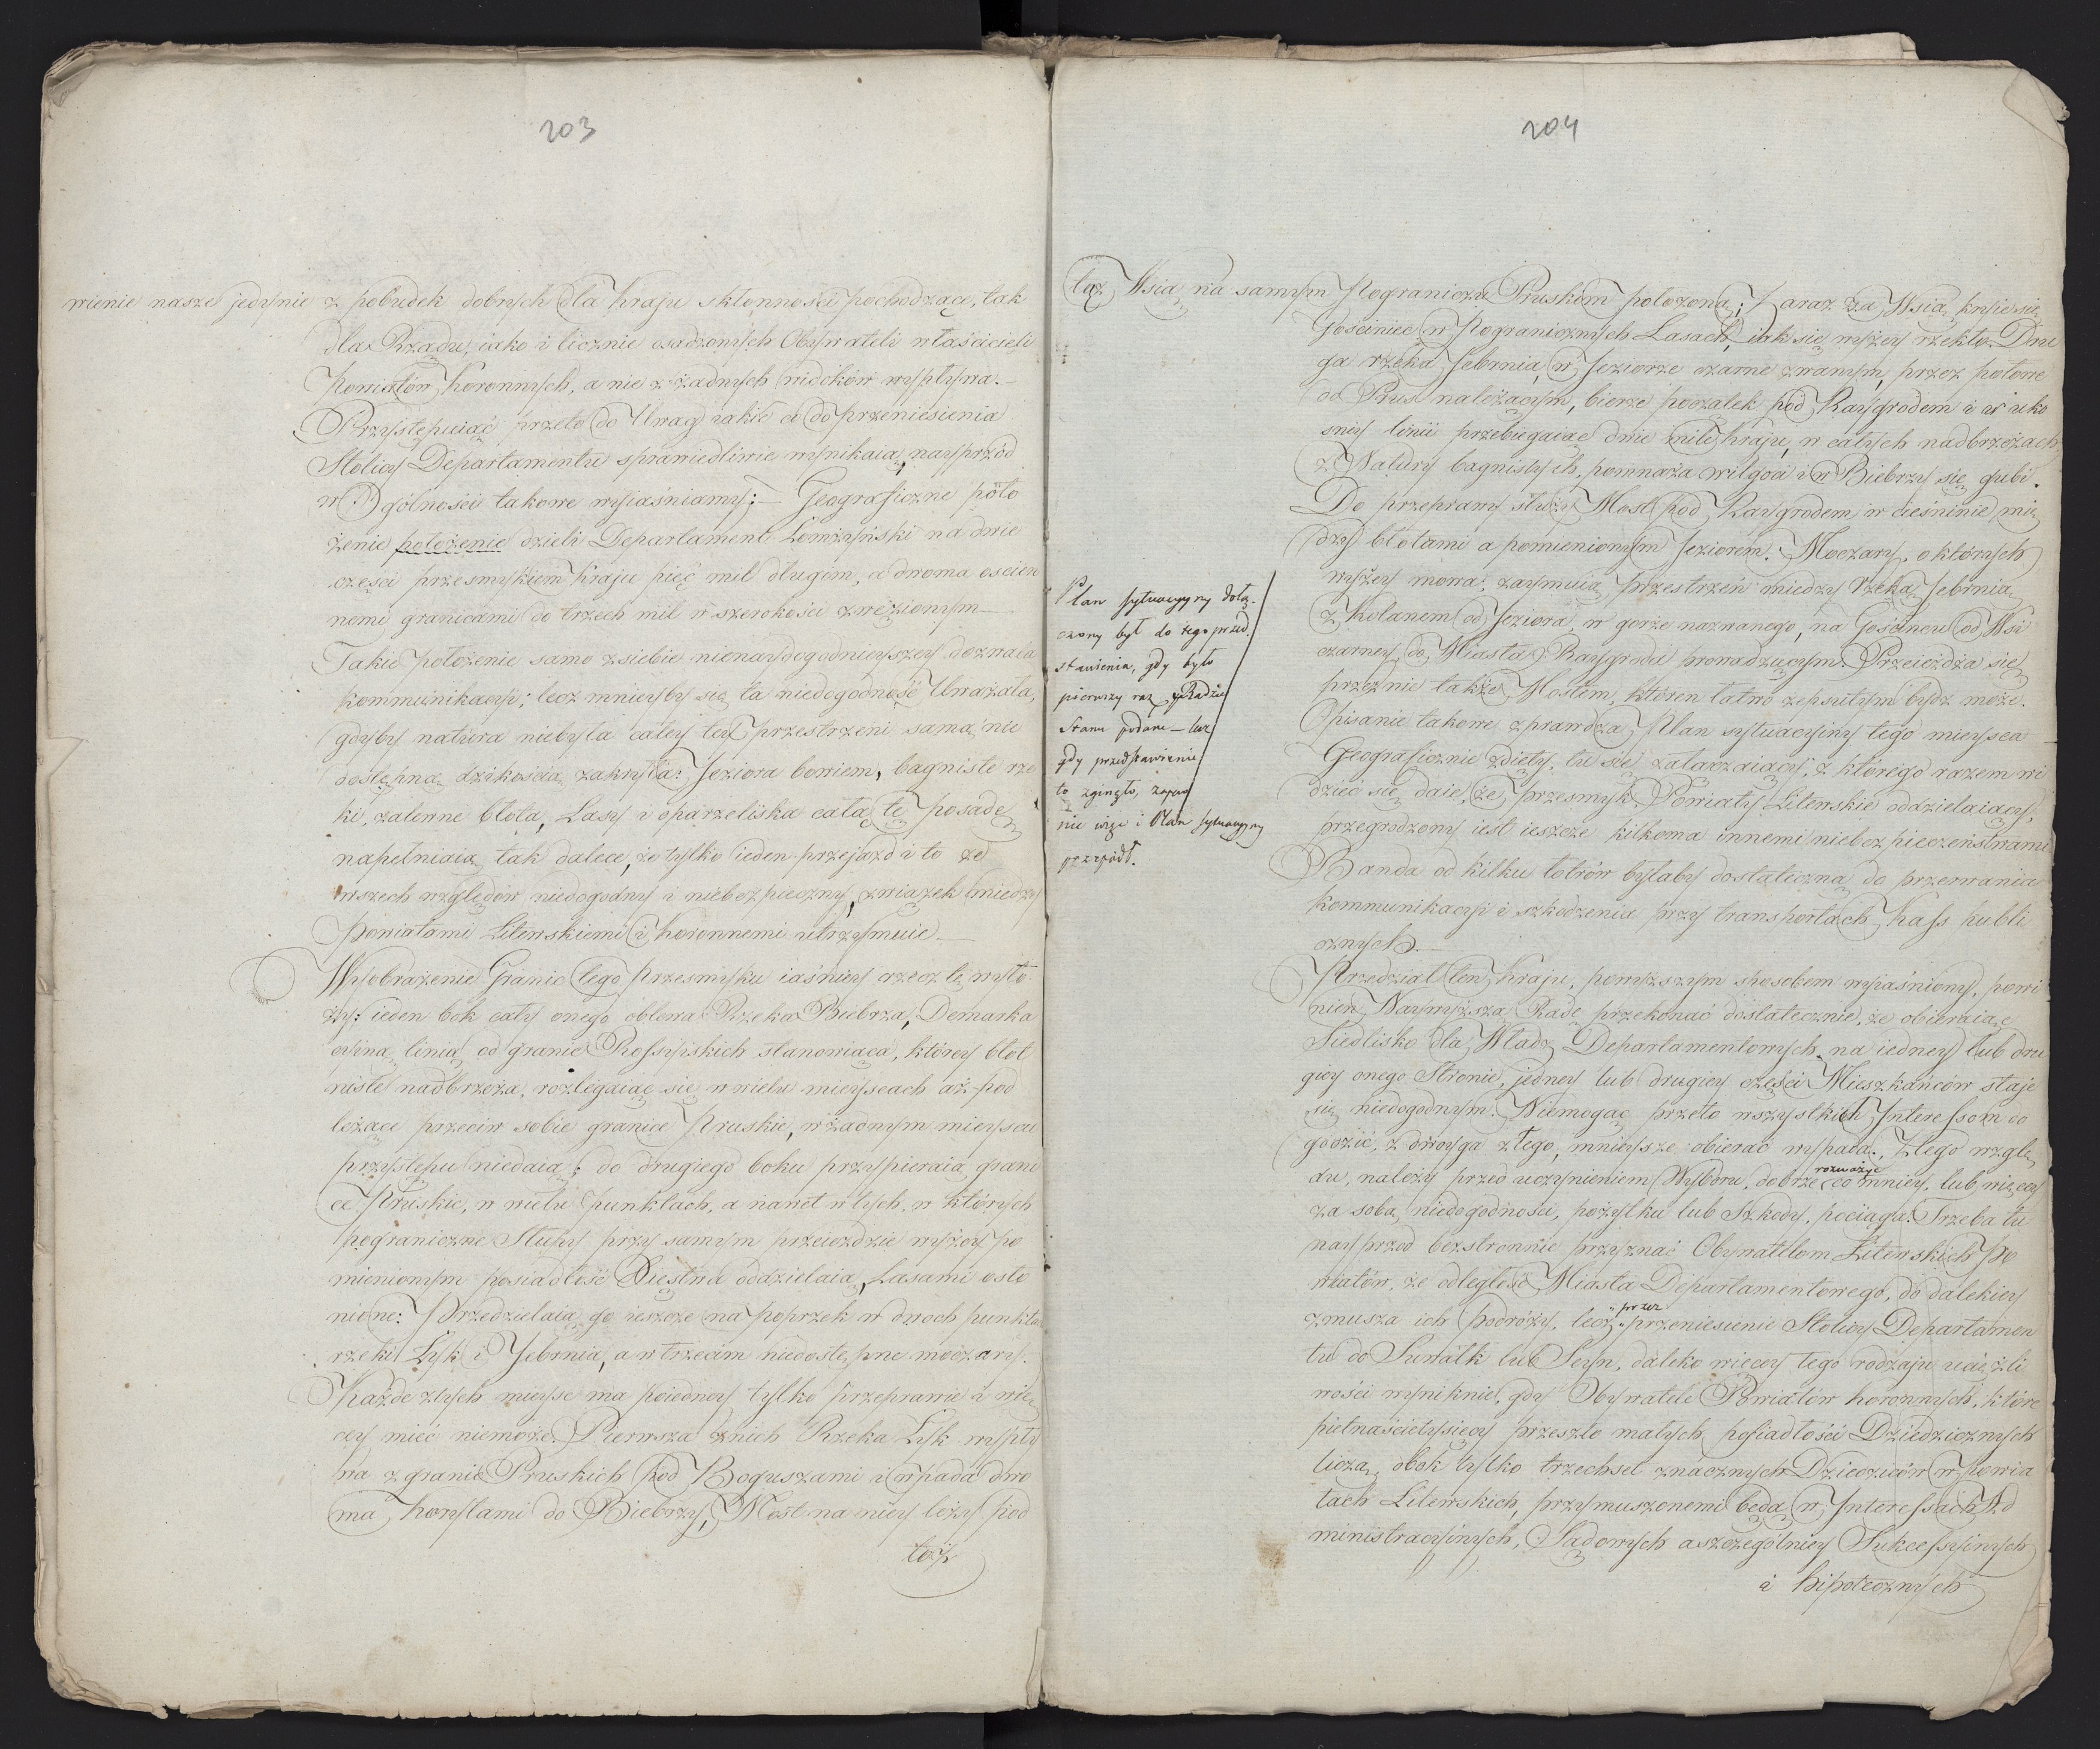 203
wienie nasze jedynie z pobudek dobrych dla kraju skłonności pochodzące, tak
dla Rządu, iako i licznie osadzonych Obywateli właścicieli
Powiatów Koronnych, a nie z żadnych widoków wypływa. —
Przystępuiąc przeto do Uwag iakie a do przeniesienia
Stolicy Departamentu sprawiedliwie wynikaią, nayprzód
w Ogólności takowe wyiaśniamy: — Geograficzne poło
żenie położenie dzieli Departament Łomżyński na dwie
części przesmykiem kraju pięć mil długim, a dwoma ościen
nemi granicami do trzech mil w szerokości zwężionym —
Takie położenie samo z siebie nienaydogodnieyszey dozwala
kommunikacyi; lecz mnieyby się ta niedogodność Uważała,
gdyby natura niebyła całey tey przestrzeni samą nie
dostępną dzikością zakryła: Jeziora bowiem, bagniste rze
ki, zalewne błota, Lasy i oparzeliska całą tę posadę
napełniaią tak dalece, że tylko ieden przejazd i to ze
wszech względów niedogodny i niebezpieczny, związek między
Powiatami Litewskiemi i Koronnemi utrzymuie —
Wyobrażenie Granic tego przesmyku iaśniey rzecz tę wyło
ży: ieden bok cały onego oblewa Rzeka Biebrza, Demarka
cyiną linią od granic Rossyiskich stanowiąca, którey błot
niste nadbrzeża, rozlegaiąc się w wielu mieyscach aż pod
leżące przeciw sobie granice Pruskie, w żadnym mieyscu
przystępu niedaią; do drugiego boku przypieraią grani
ce Pruskie, w wielu punktach, a nawet w tych, w których
pograniczne Słupy przy samym przeieździe wyżey po
mienionym posiadłość Xięstwa oddzielaią, Lasami osło
nione: Przedzielaią go ieszcze na poprzek w dwoch punkta
rzeki Łyk i Jebrnia, a w trzecim niedostępne moczary.
Każde z tych mieysc ma poiedney tylko przeprawie i wię
cey mieć niemoże. Pierwsza z nich Rzeka Łyk wypły
wa z granic Pruskich pod Boguszami i wpada dwo
ma korytami do Biebrzy, Most na niey leży pod
taż
204
taż Wsią na samym Pograniczu Pruskim położoną; Zaraz za Wsią kryie się
Gościniec w Pogranicznych Lasach, iak się wyżey rzekło. Dru
ga rzeka Jebrnia, w Jeziorze czarne zwanym, przez połowę
od Prus należącym, bierze początek pod Raygrodem i w uko
śney linii przebiegaiąc dwie mile kraju, w całych nadbrzeżach
z Natury bagnistych, pomnaża wilgoci i w Biebrzy się gubi.
Do przeprawy służy Most pod Raygrodem w cieśninie mię
dzy błotami a pomienionym Jeziorem. Moczary, o których
wyżey mowa: zaymuią przestrzeń miedzy rzeką Jebrnią
z Kolanem od Jeziora, w gorze nazwanego, na Gościńcu od Wsi
czarney do Miasta Raygrodu prowadzącym. Przeieżdża się
przez nie także Mostem, któren łatwo zepsutym bydź może.
Opisanie takowe zprawdza Plan sytuacyiny tego mieysca
Geograficznie zdięty, tu się załączaiący, z którego razem wi
dzieć się daie, że przesmyk Powiaty Litewskie oddzielaiący,
przegrodzony iest ieszcze kilkoma innemi niebezpieczeństwami
Banda od kilku łotrów byłaby dostateczną do przerwania
kommunikacyi i szkodzenia przy transportach Kass publi
cznych. —
Plan sytuacyjny dołą-
czony był do tego przed
stawienia, gdy było
pierwszy raz Radzie
Stanu podane — lecz
gdy przedstawienie
to zginęło, zapew
nie więc i Plan sytuacyjny
przepadł.
Przedział ten kraju, powyższym sposobem wyiaśniony, powi
nien Naywyższą Radę przekonać dostatecznie, że obieraiąc
Siedlisko dla Władz Departamentowych na iedney lub dru
giey onego Stronie, jedney lub drugiey części Mieszkańców staje
się niedogodnym. Niemogąc przeto wszystkich Interessom do
godzić, z dwoyga złego, mnieysze obierać wypada. Z tego wzglę
du, należy przed uczynieniem Wyboru, dobrze rozważyć co mniey, lub więcey
za sobą niedogodności, pożytku lub Szkody, pociąga. Trzeba tu
nayprzód bezstronnie przyznać Obywatelom Litewskich Po
wiatów, że odległość Miasta Departamentowego, do dalekiey
zmusza ich podróży, lecz przez przeniesienie Stolicy Departamen
tu do Suwałk lub Seyn, daleko więcey tego rodzaju uciążli
wości wyniknie, gdy Obywatele Powiatów koronnych, które
piętnaścietysięcy przeszło małych posiadłości Dziedzicznych
liczą, obok tylko trzechset znacznych Dziedziców w powia
tach Litewskich, przymuszonemi będą w Interessach Ad
ministracyinych, Sądowych a szczególniey Sukcessyinych
i hipotecznych